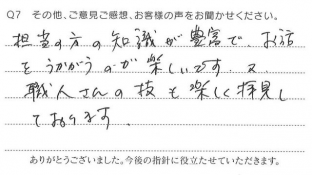 Q7 その他、ご意見ご感想、お客様の声をお聞かせください。
担当の方の知識が豊富で、お話
をうかがうのが楽しいです。又
職人さんの技も楽しく拝見し
ております。
ありがとうございました。今後の指針に役立たせていただきます。